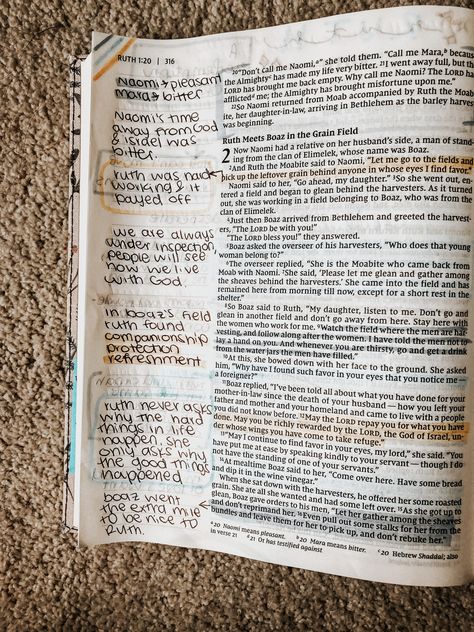 RUTH 1:20 | 316
Naomi → pleasant
mara → bitter
Naomi's time
away from God
& Israel was
bitter.
ruth was
working & it
payed off
we are always
under inspection,
people will see
how we live
with God.
in boaz's field
ruth found
companionship
protection
refreshment
ruth never asks
why the hard
things in life
happen, she
only asks why
the good things
happened
boaz went
the extra mile
to be nice to
Ruth.
20 "Don't call me Naomi,a" she told them. "Call me Mara,b because
the Almightyc has made my life very bitter. 21 I went away full, but the
LORD has brought me back empty. Why call me Naomi? The LORD has
afflictedd me; the Almighty has brought misfortune upon me."
22 So Naomi returned from Moab accompanied by Ruth the Moab
ite, her daughter-in-law, arriving in Bethlehem as the barley harvest
was beginning.
Ruth Meets Boaz in the Grain Field
2 Now Naomi had a relative on her husband's side, a man of stand-
ing from the clan of Elimelek, whose name was Boaz.
2 And Ruth the Moabite said to Naomi, "Let me go to the fields and
pick up the leftover grain behind anyone in whose eyes I find favor."
Naomi said to her, "Go ahead, my daughter." 3 So she went out, en-
tered a field and began to glean behind the harvesters. As it turned
out, she was working in a field belonging to Boaz, who was from the
clan of Elimelek.
4 Just then Boaz arrived from Bethlehem and greeted the harvest-
ers, "The LORD be with you!"
"The LORD bless you!" they answered.
5 Boaz asked the overseer of his harvesters, "Who does that young
woman belong to?"
6 The overseer replied, "She is the Moabite who came back from
Moab with Naomi. 7 She said, 'Please let me glean and gather among
the sheaves behind the harvesters.' She came into the field and has
remained here from morning till now, except for a short rest in the
shelter."
8 So Boaz said to Ruth, "My daughter, listen to me. Don't go and
glean in another field and don't go away from here. Stay here with
the women who work for me. 9 Watch the field where the men are har-
vesting, and follow along after the women. I have told the men not to
lay a hand on you. And whenever you are thirsty, go and get a drink
from the water jars the men have filled."
10 At this, she bowed down with her face to the ground. She asked
him, "Why have I found such favor in your eyes that you notice me—
a foreigner?"
11 Boaz replied, "I've been told all about what you have done for your
mother-in-law since the death of your husband—how you left your
father and mother and your homeland and came to live with a people
you did not know before. 12 May the LORD repay you for what you have
done. May you be richly rewarded by the LORD, the God of Israel, un-
der whose wings you have come to take refuge."
13 "May I continue to find favor in your eyes, my lord," she said. "You
have put me at ease by speaking kindly to your servant—though I do
not have the standing of one of your servants."
14 At mealtime Boaz said to her, "Come over here. Have some bread
and dip it in the wine vinegar."
When she sat down with the harvesters, he offered her some roasted
grain. She ate all she wanted and had some left over. 15 As she got up to
glean, Boaz gave orders to his men, "Let her gather among the sheaves
and don't reprimand her. 16 Even pull out some stalks for her from the
bundles and leave them for her to pick up, and don't rebuke her."
a 20 Naomi means pleasant. b 20 Mara means bitter. c 20 Hebrew Shaddai; also
in verse 21 d 21 Or has testified against